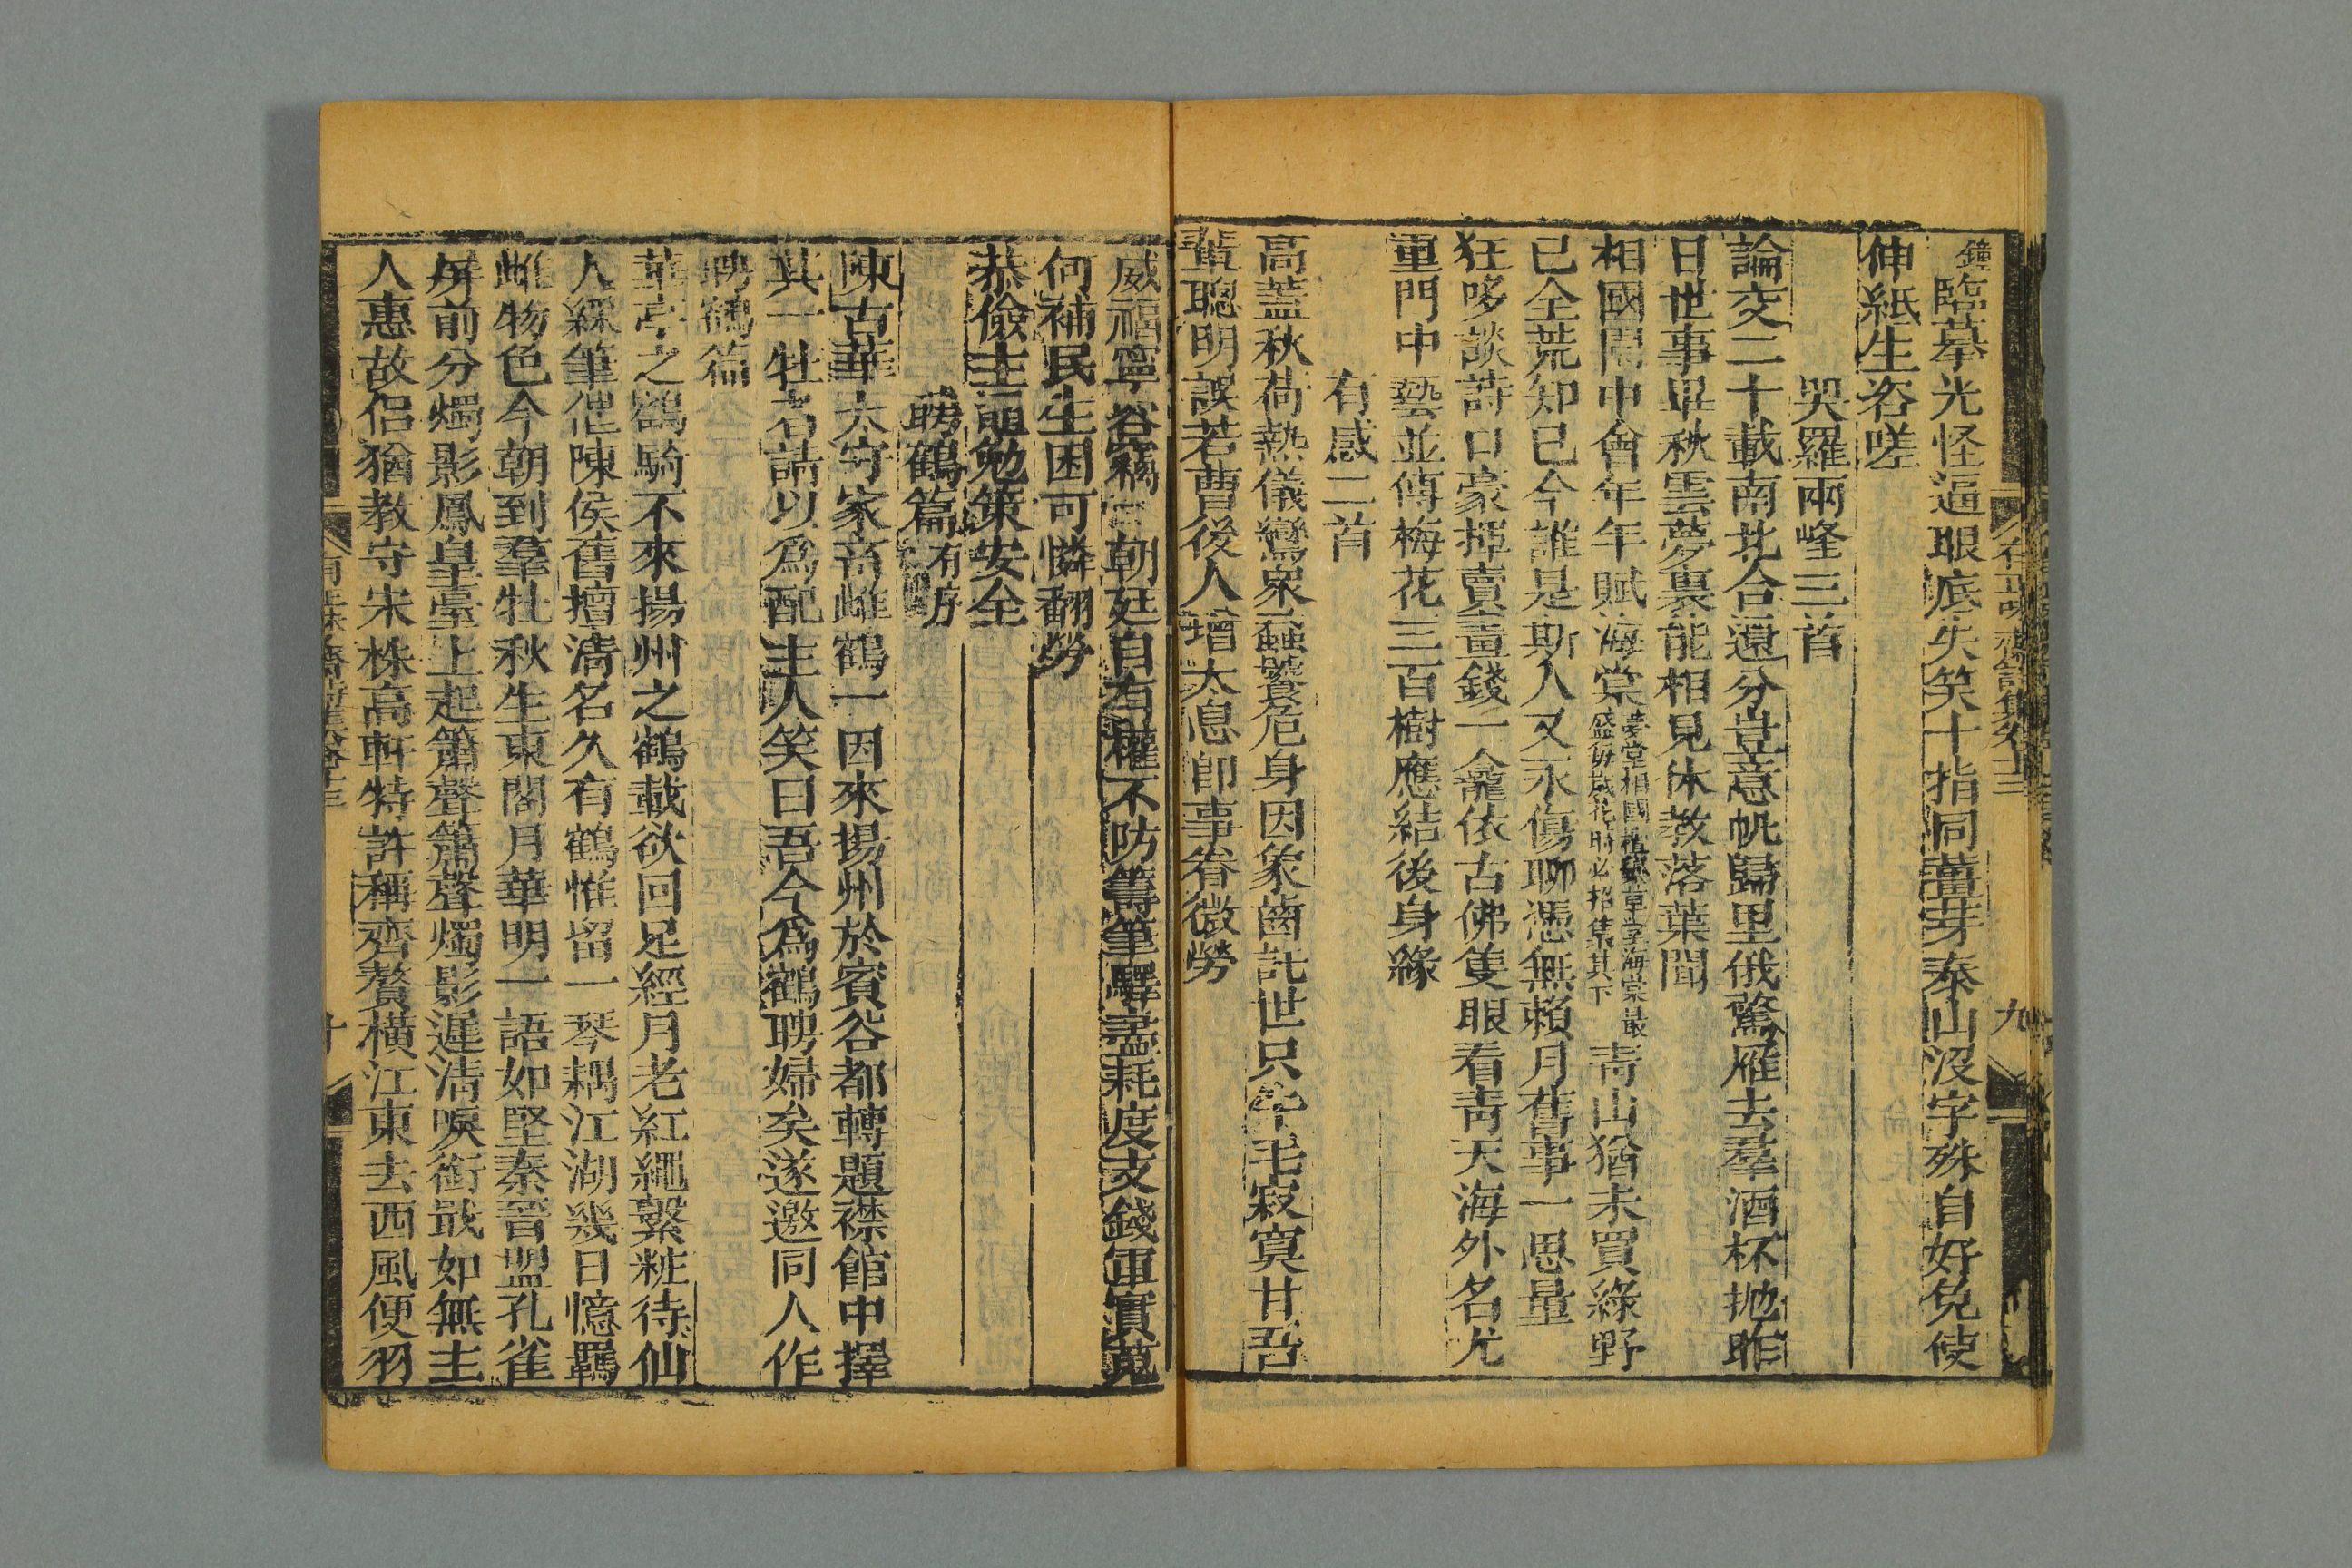 鐘臨摹光怪逼眼底失笑十指同薑芽泰山沒字殊自好免使
伸紙生咨嗟
哭羅兩峰三首
論交二十載南北合還分豈意帆歸里俄驚雁去羣酒杯拋昨
日世事畢秋雲夢裏能相見休教落葉聞
相國閣中會年年賦海棠
夢堂相國草堂海棠最
盛每歲花時必招集其下
青山猶未買綠野
已全荒知己今誰是斯人又永傷聊憑無賴月舊事一思量
狂哆談詩口豪揮賣畫錢一龕依古佛隻眼看青天海外名尤
重門中藝並傳梅花三百樹應結後身緣
有感二首
高蓋秋荷熱儀鸞衆蝨饕危身因象齒託世只牛毛寂寞甘吾
輩聰明誤若曹後人增太息即事眷微勞
威福寧容竊朝廷自有權不防籌筆驛盡耗度支錢軍實蒐
何補民生困可憐翻勞
恭儉主旰勉策安全
聘鶴篇有序
陳古華太守家畜雌鶴一因來揚州於賓谷都轉題襟館中擇
其一牡者請以爲配主人笑曰吾今爲鶴聘婦矣遂邀同人作
聘鶴篇
華亭之鶴騎不來揚州之鶴載欲回足經月老紅繩繫粧待仙
人綵筆催陳侯舊擅清名久有鶴惟留一琴耦江湖幾日憶羈
雌物色今朝到羣牡秋生東閣月華明一語如堅秦晉盟孔雀
屏前分燭影鳳皇臺上起簫聲簫聲燭影遲清唳銜戢如無主
人惠故侶猶教守宋株高軒特許稱齊贅橫江東去西風便羽
有正味齋詩集卷十三
九
十